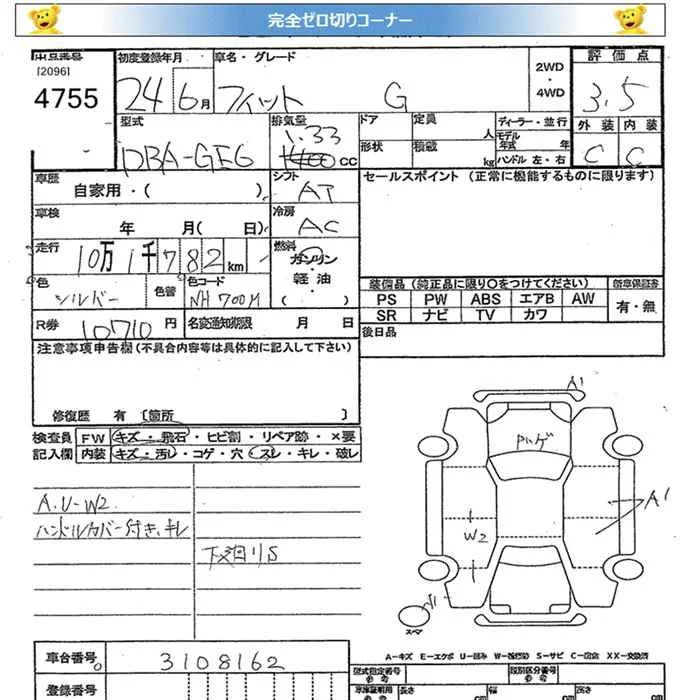 完全ゼロ切りコーナー
出品番号 初度登録年月 車名・グレード 2WD・4WD 評価点
[2096]
4755 24 6月 フィット G 3.5
型式 排気量 ドア 定員 人 ディーラー・並行 外装 内装
DBA-GE6 1.33 cc 形状 積載 kg モデル年式 年 ハンドル 左・右 C C
車歴 自家用・( ) シフト AT セールスポイント (正常に機能するものに限ります)
車検 年 月( 日) 冷房 AC
走行 10万1千782km 燃料 ガソリン・軽油・( )
色 シルバー 色替 色コード NH700M
装備品 (純正品に限り○をつけてください) 新車保証書
PS PW ABS エアB AW 有・無
SR ナビ TV カワ
R券 10710円 名変通知期限 月 日 後日品
注意事項申告欄(不具合内容等は具体的に記入して下さい)
修復歴 有 [箇所 ]
検査員 FW キズ・飛石・ヒビ割・リペア跡・×要
記入欄 内装 キズ・汚レ・コゲ・穴・スレ・キレ・破レ
A.U-W2
ハンドルカバー付き、キレ
下廻リS
A1
A1
W2
スペア
A-キズ E-エクボ U-凹み W-補修跡 S-サビ C-腐食 XX-交換済
車台番号 3108162 型式指定番号 参考 類別区分番号 参考
登録番号 車庫証明用 参考 長さ cm 幅 cm 高さ cm